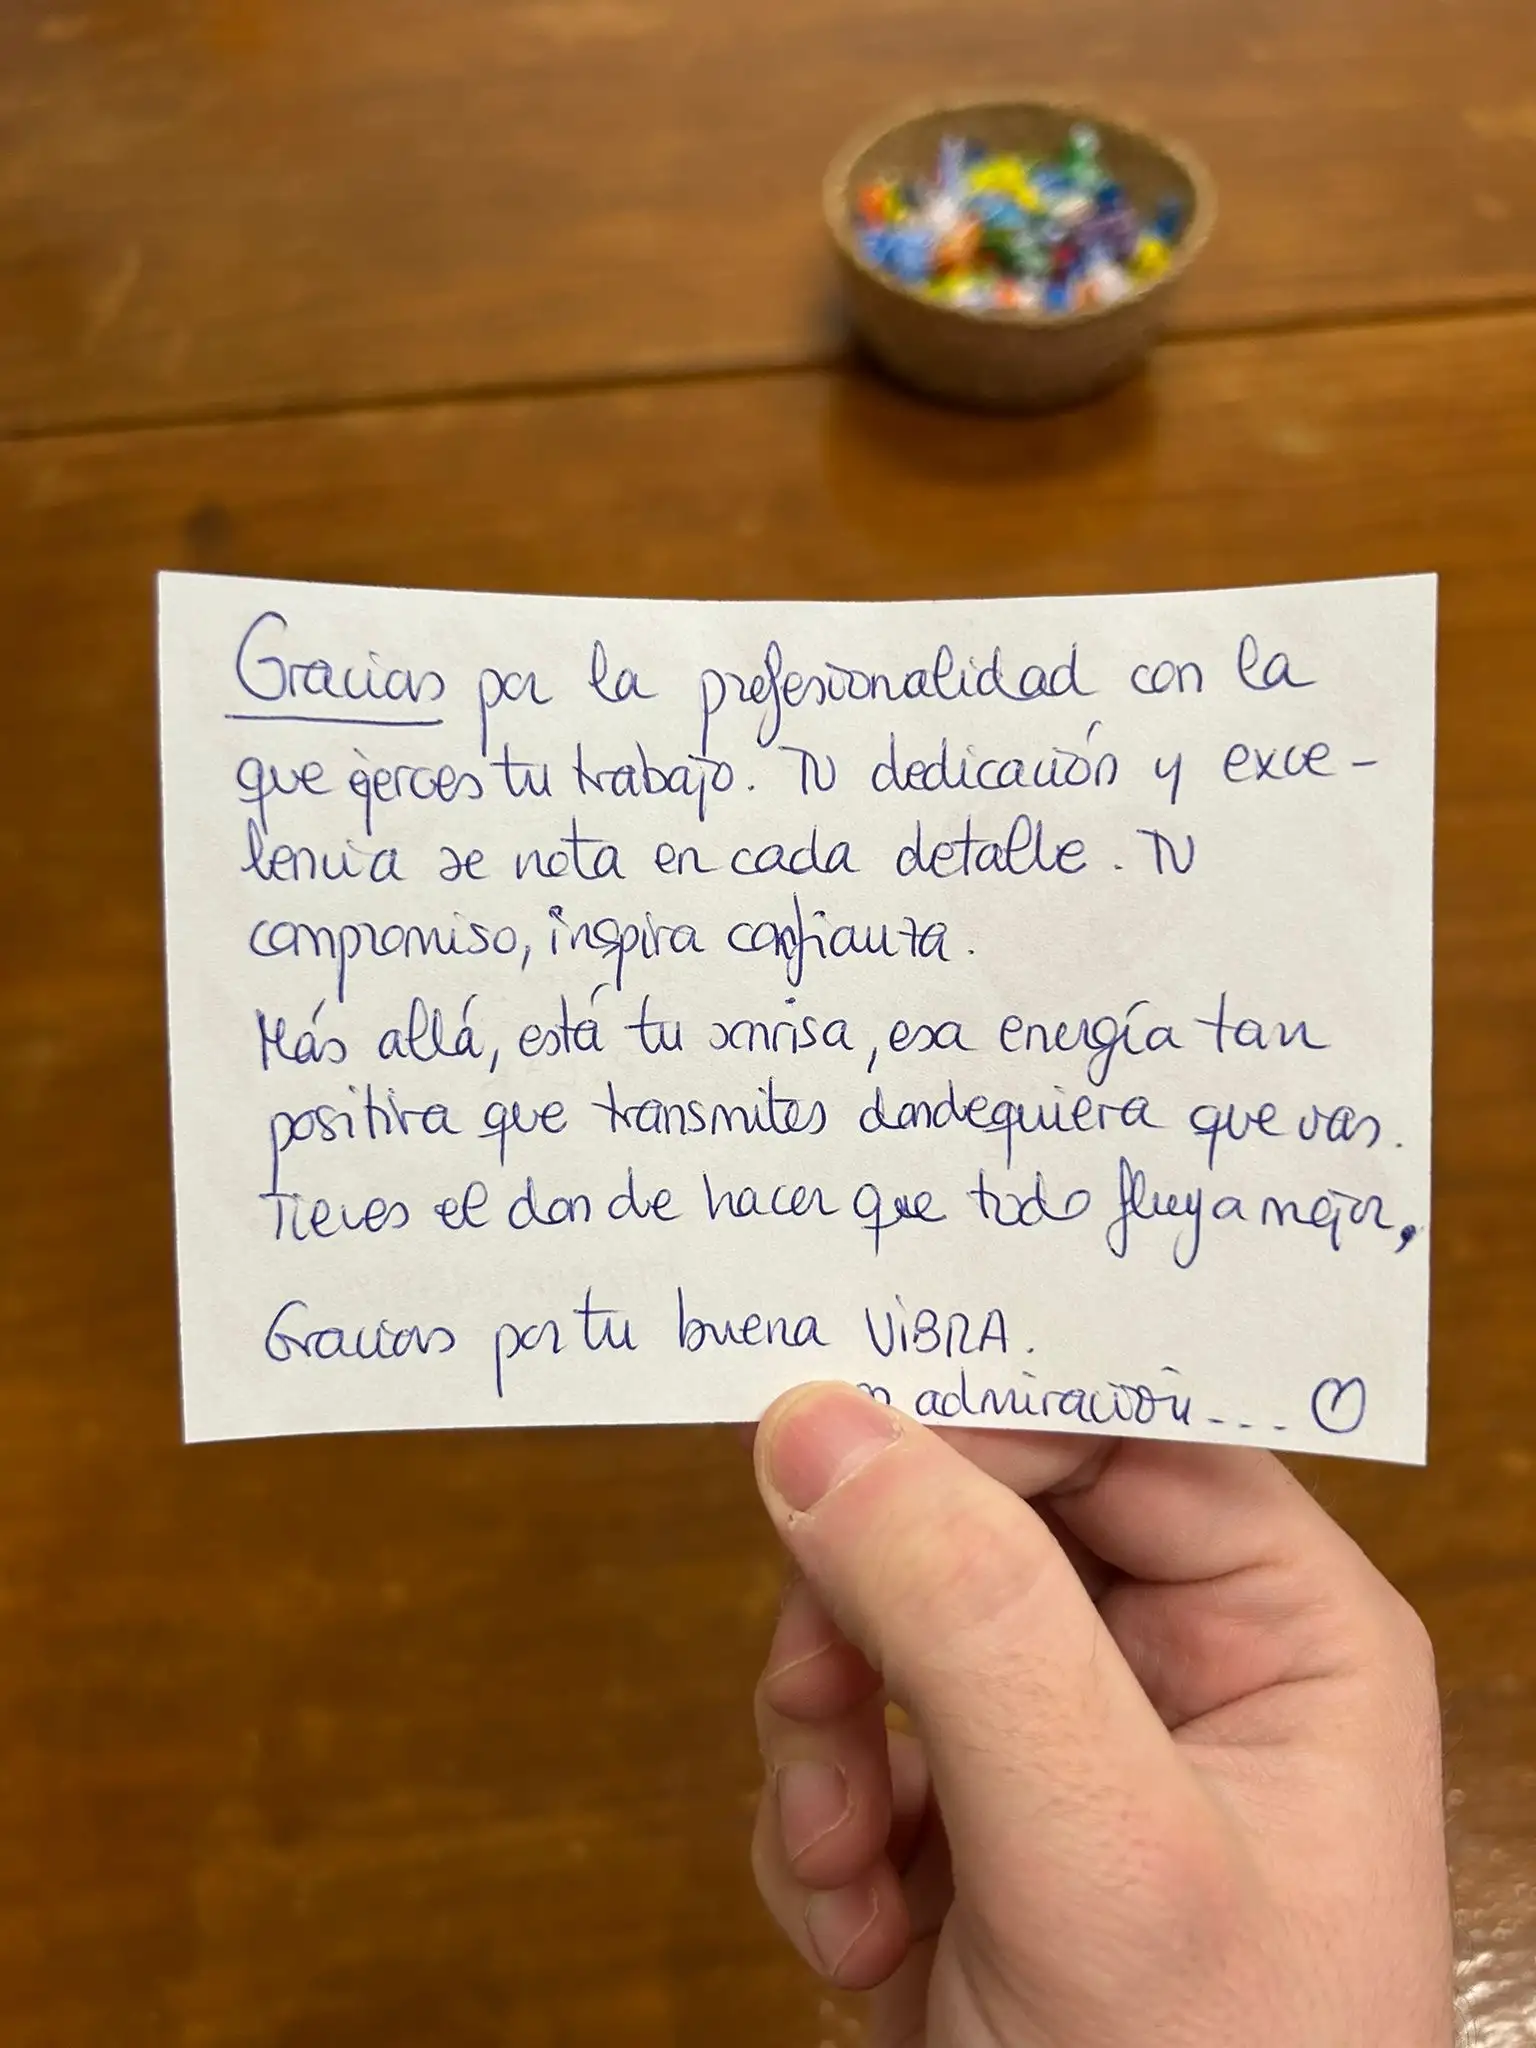 Gracias por la profesionalidad con la
que ejerces tu trabajo. Tu dedicación y exce-
lencia se nota en cada detalle. Tu
compromiso, inspira confianza.
Más allá, está tu sonrisa, esa energía tan
positiva que transmites dondequiera que vas.
Tienes el don de hacer que todo fluya mejor,
Gracias por tu buena ViBRA.
admiración... ♡